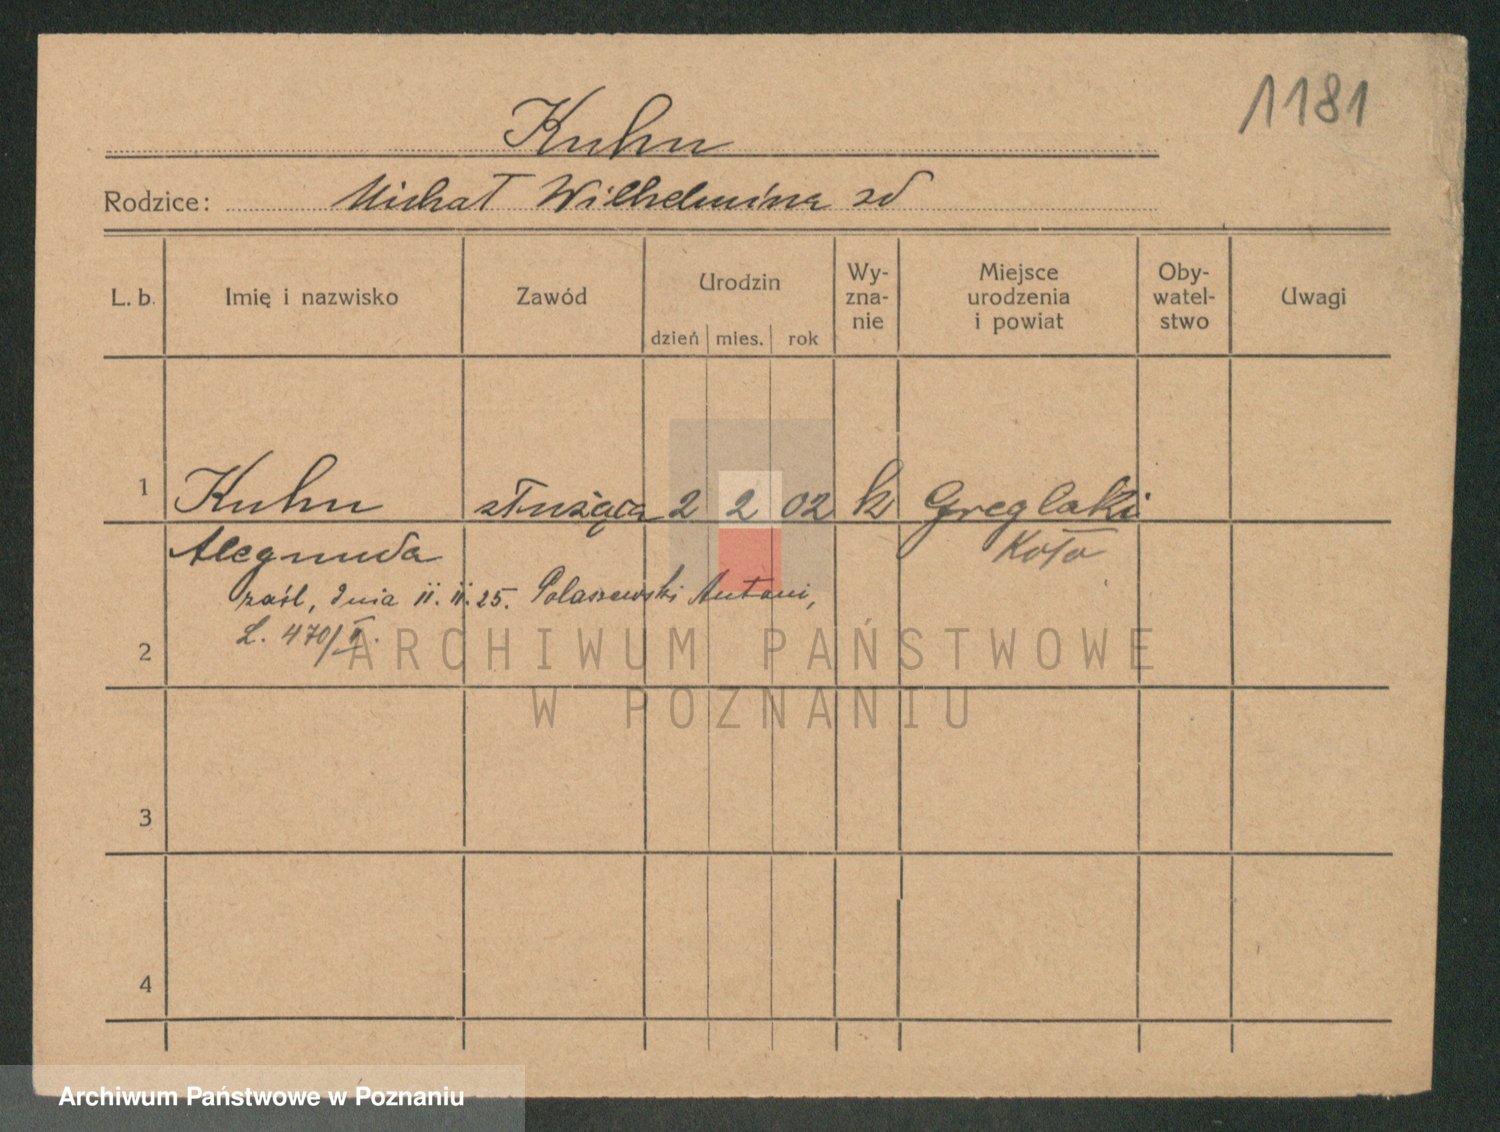 1181
Kuhn
Rodzice: Michał Wilhelmina zd
L. b. Imię i nazwisko Zawód Urodzin dzień mies. rok Wy-zna-nie Miejsce urodzenia i powiat Oby-watel-stwo Uwagi
1 Kuhn służąca 2 2 02 k Greglaki
Koło
zaśl, dnia 11. 11. 25. Polaszewski Antoni,
2 L. 470/II.
ARCHIWUM PAŃSTWOWE
W POZNANIU
3
4
Archiwum Państwowe w Poznaniu